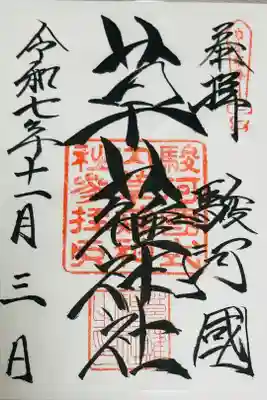 奉拝
駿河國
草薙神社
令和七年十一月三日